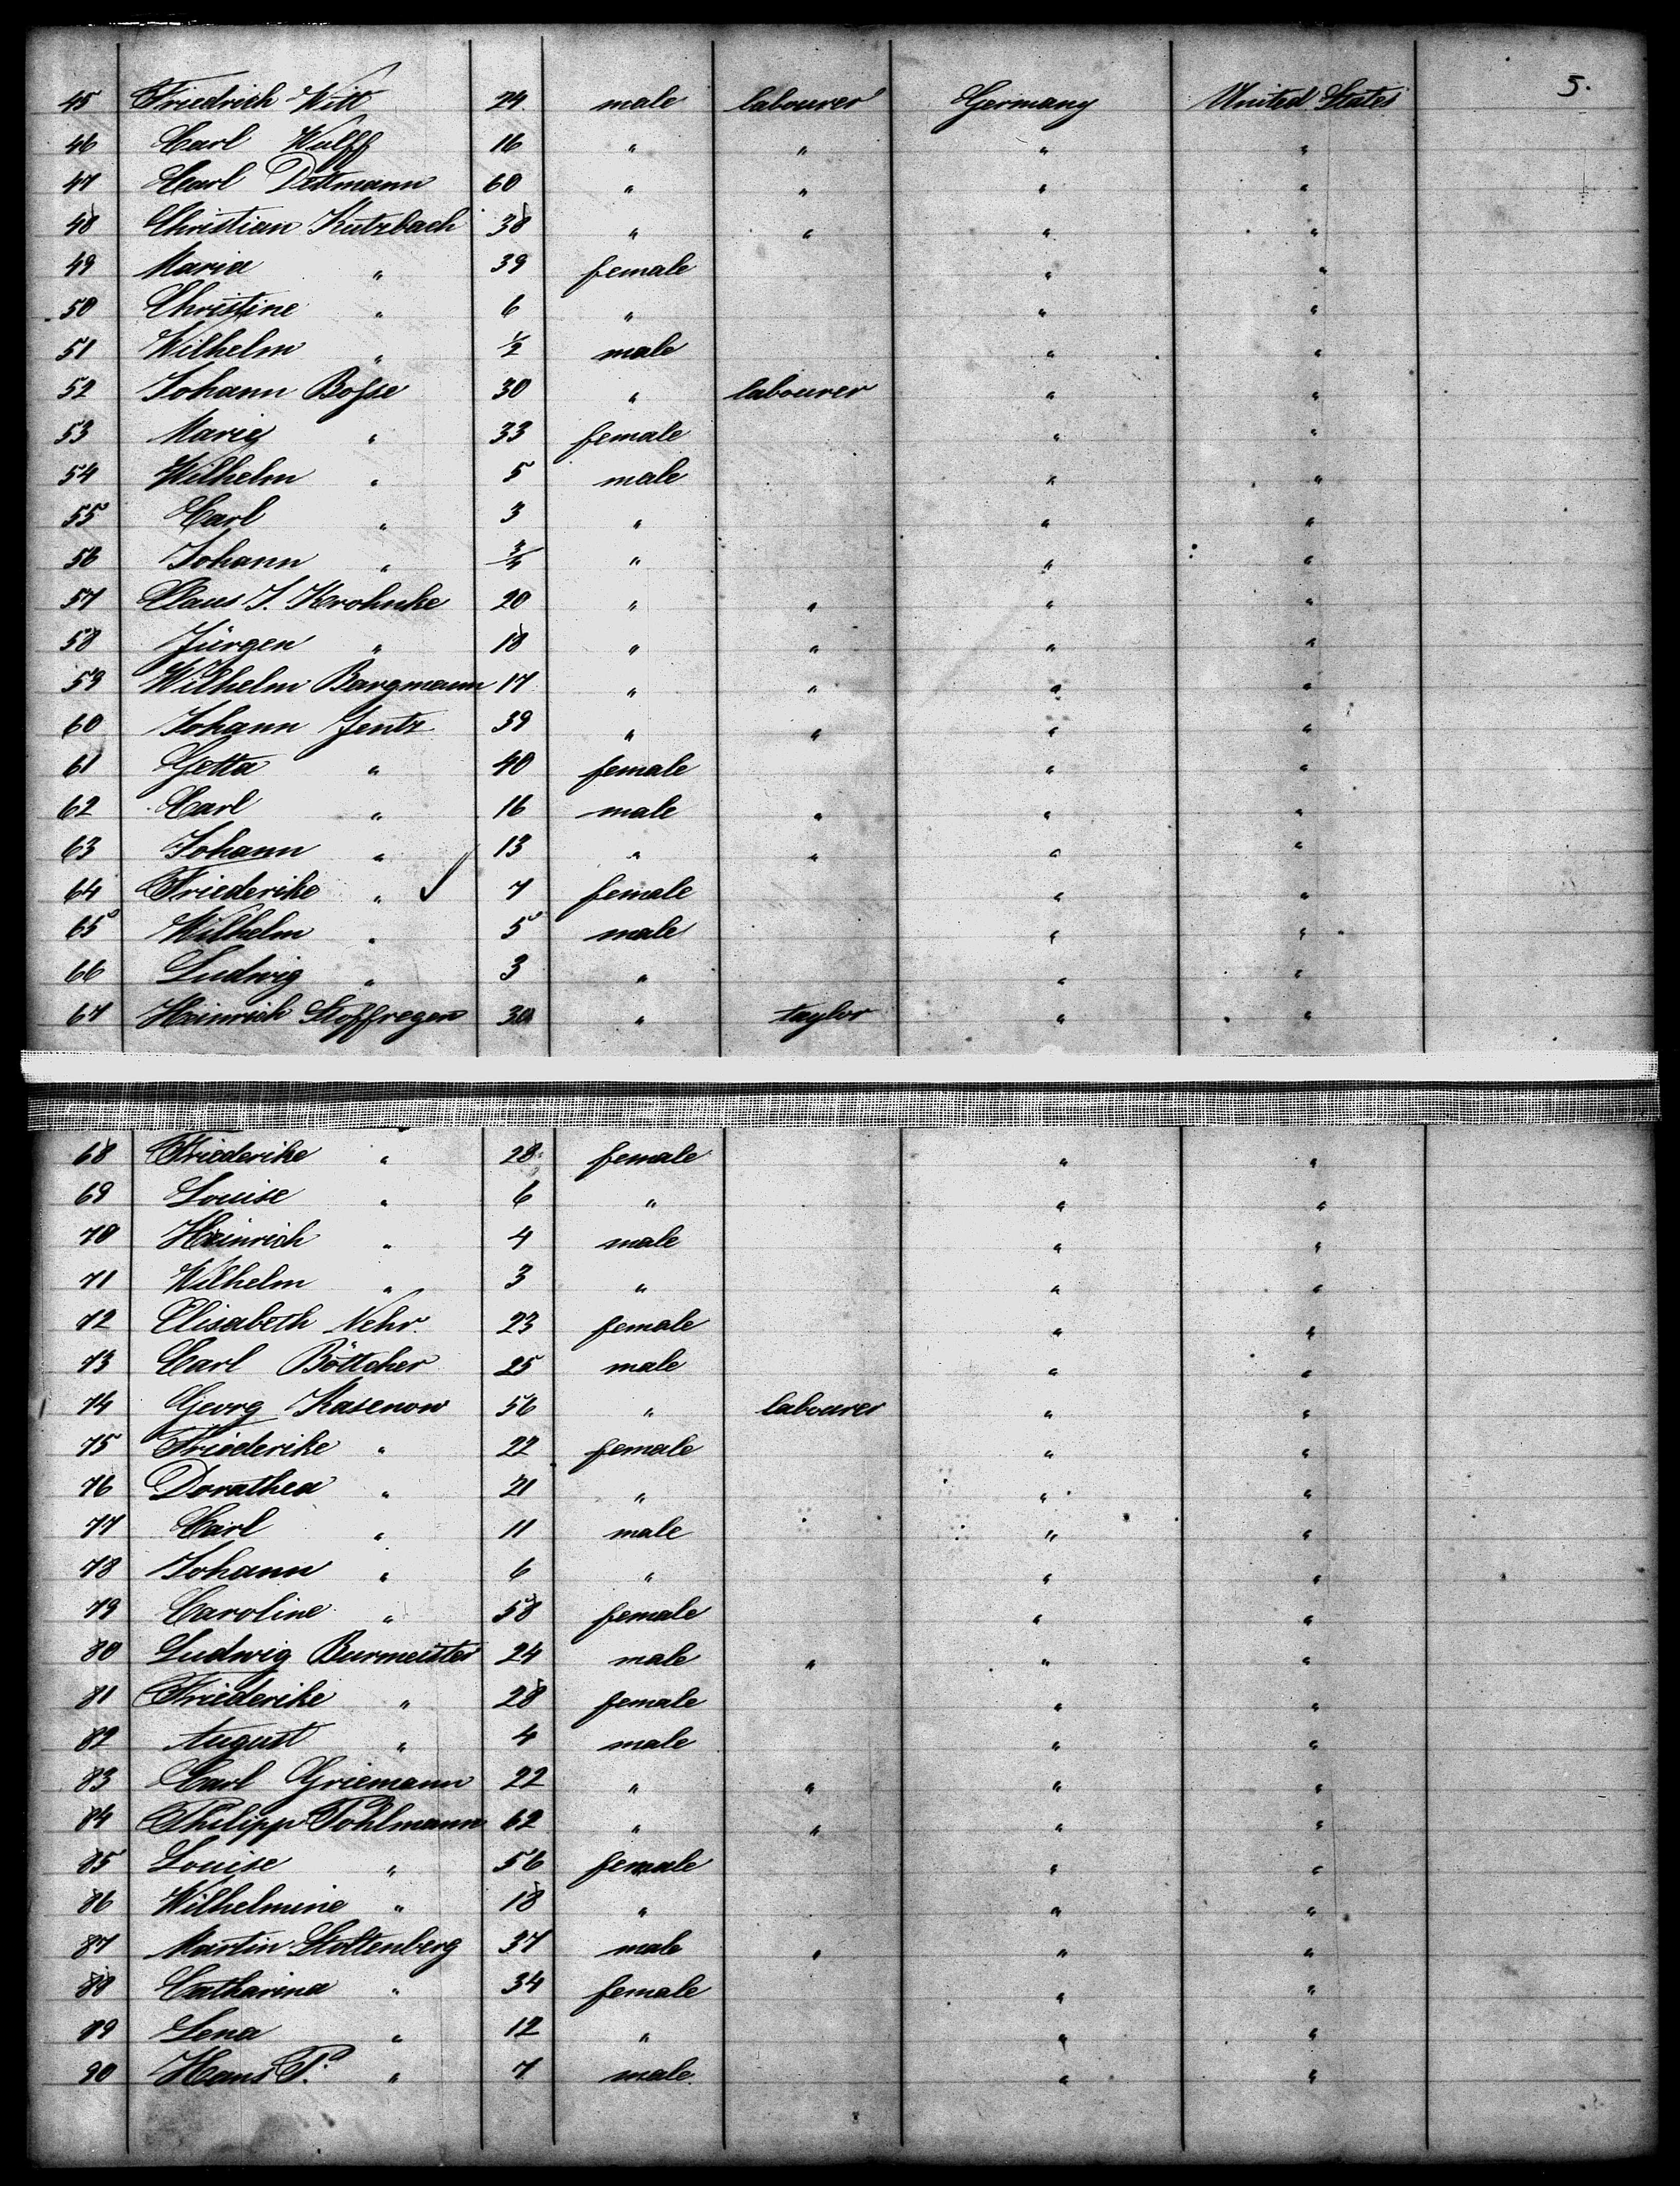 5.
45 Friedrich Witt 24. male labourer Germany United States
46 Carl Wulff 16 " " " "
47 Carl Dettmann 60 " " " "
48 Christian Kutzbach 38 " " " "
49 Maria " 39 female " "
50 Christine " 6 " " "
51 Wilhelm " 1/2 male " "
52 Johann Bosse 30 " labourer " "
53 Marie " 33 female " "
54 Wilhelm " 5 male " "
55 Carl " 3 " " "
56 Johann " 3/4 " " "
57 Claus J. Krohnke 20 " " " "
58 Jürgen " 18 " " " "
59 Wilhelm Bargmann 17 " " " "
60 Johann Jentz 39 " " " "
61 Getta " 40 female " "
62 Carl " 16 male " " "
63 Johann " 13 " " " "
64 Friederike " 7 female " "
65 Wilhelm " 5 male " "
66 Ludwig " 3 " " "
67 Heinrich Stoffregen 30 " taylor " "
68 Friederike " 28 female " "
69 Louise " 6 " " "
70 Heinrich " 4 male " "
71 Wilhelm " 3 " " "
72 Elisabeth Nehr. 23 female " "
73 Carl Böttcher 25 male " "
74 Georg Kasenow 56 " labourer " "
75 Friederike " 22 female " "
76 Dorathea " 21 " " "
77 Carl " 11 male " "
78 Johann " 6 " " "
79 Caroline " 58 female " "
80 Ludwig Burmeister 24 male " " "
81 Friederike " 28 female " "
82 August " 4 male " "
83 Carl Griemann 22 " " " "
84 Philipp Pohlmann 62 " " " "
85 Louise " 56 female " "
86 Wilhelmine " 18 " " "
87 Martin Stoltenberg 37 male " " "
88 Catharina " 34 female " "
89 Lena " 12 " " "
90 Hans P. " 7 male " "